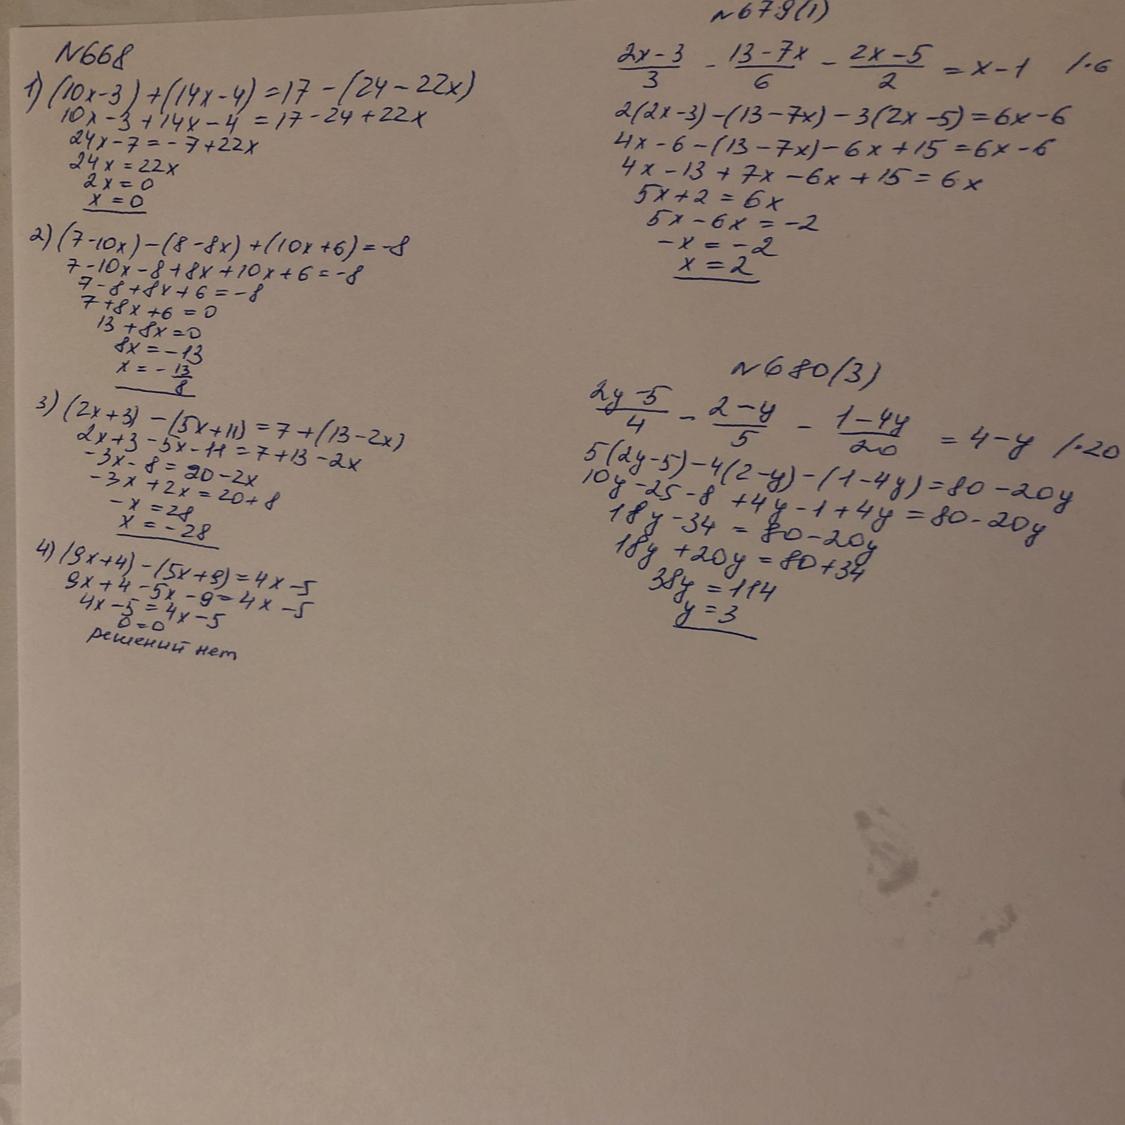 №668
1) (10x-3)+(14x-4)=17-(24-22x)
10x-3+14x-4=17-24+22x
24x-7=-7+22x
24x=22x
2x=0
x=0
2) (7-10x)-(8-8x)+(10x+6)=-8
7-10x-8+8x+10x+6=-8
7-8+8x+6=-8
7+8x+6=0
13+8x=0
8x=-13
x=-13/8
3) (2x+3)-(5x+11)=7+(13-2x)
2x+3-5x-11=7+13-2x
-3x-8=20-2x
-3x+2x=20+8
-x=28
x=-28
4) (9x+4)-(5x+9)=4x-5
9x+4-5x-9=4x-5
4x-5=4x-5
0=0
решений нет
№679(1)
(2x-3)/3 - (13-7x)/6 - (2x-5)/2 = x-1 /·6
2(2x-3)-(13-7x)-3(2x-5)=6x-6
4x-6-(13-7x)-6x+15=6x-6
4x-13+7x-6x+15=6x
5x+2=6x
5x-6x=-2
-x=-2
x=2
№680(3)
(2y-5)/4 - (2-y)/5 - (1-4y)/20 = 4-y /·20
5(2y-5)-4(2-y)-(1-4y)=80-20y
10y-25-8+4y-1+4y=80-20y
18y-34=80-20y
18y+20y=80+34
38y=114
y=3